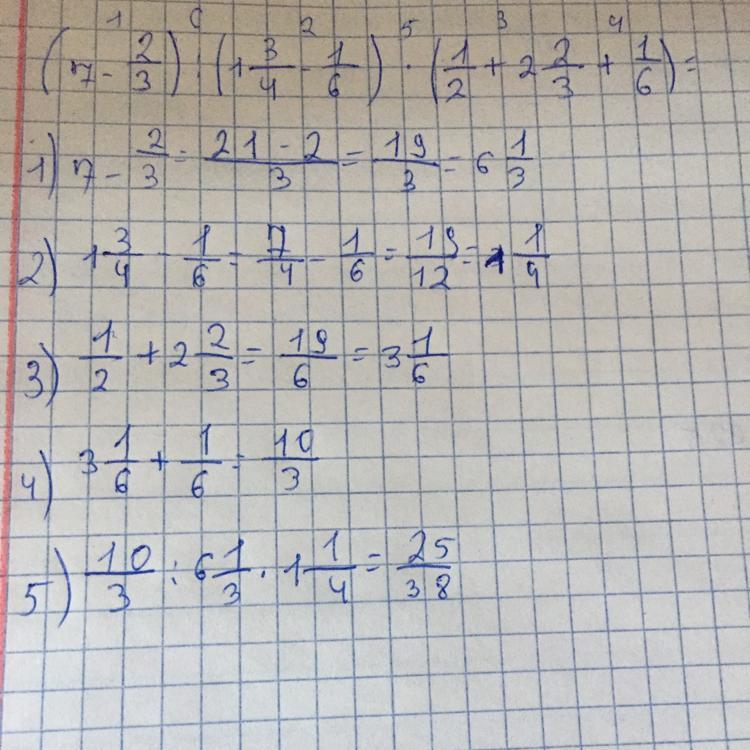 1 6 2 5 3 4
(7 - 2/3) : (1 3/4 - 1/6) · (1/2 + 2 2/3 + 1/6) =
1) 7 - 2/3 = 21 - 2/3 = 19/3 = 6 1/3
2) 1 3/4 - 1/6 = 7/4 - 1/6 = 19/12 = 1 1/4
3) 1/2 + 2 2/3 = 19/6 = 3 1/6
4) 3 1/6 + 1/6 = 10/3
5) 10/3 : 6 1/3 · 1 1/4 = 25/38